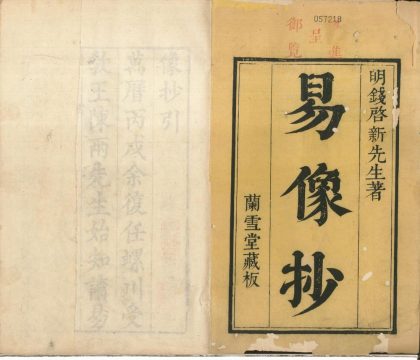 057218
呈
御覽
明錢啓新先生著
易像抄
蘭雪堂藏板
像抄引
萬曆丙戌余復任螺川受
教王先生始知讀易